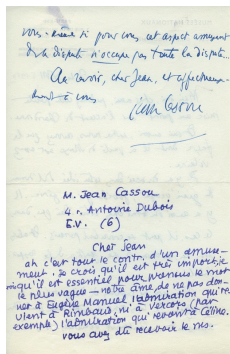 vous-même si pour vous cet aspect amusant
de la dispute n'occupe pas toute la dispute...
Au revoir, cher Jean, et affectueuse-
ment à vous
Jean Cassou
M. Jean Cassou
4 r. Antoine Dubois
E.V. (6)
Cher Jean
ah c'est tout le contr. d'un amuse-
ment. je crois qu'il est très import, je
qu'il est essentiel pour, prenons le mot
le plus vague — notre âme, de ne pas don-
ner à Eugène Manuel l'admiration qui re-
vient à Rimbaud, ni à Vercors (par
exemple) l'admiration qui revient à Céline.
vous avez dû recevoir le ms.